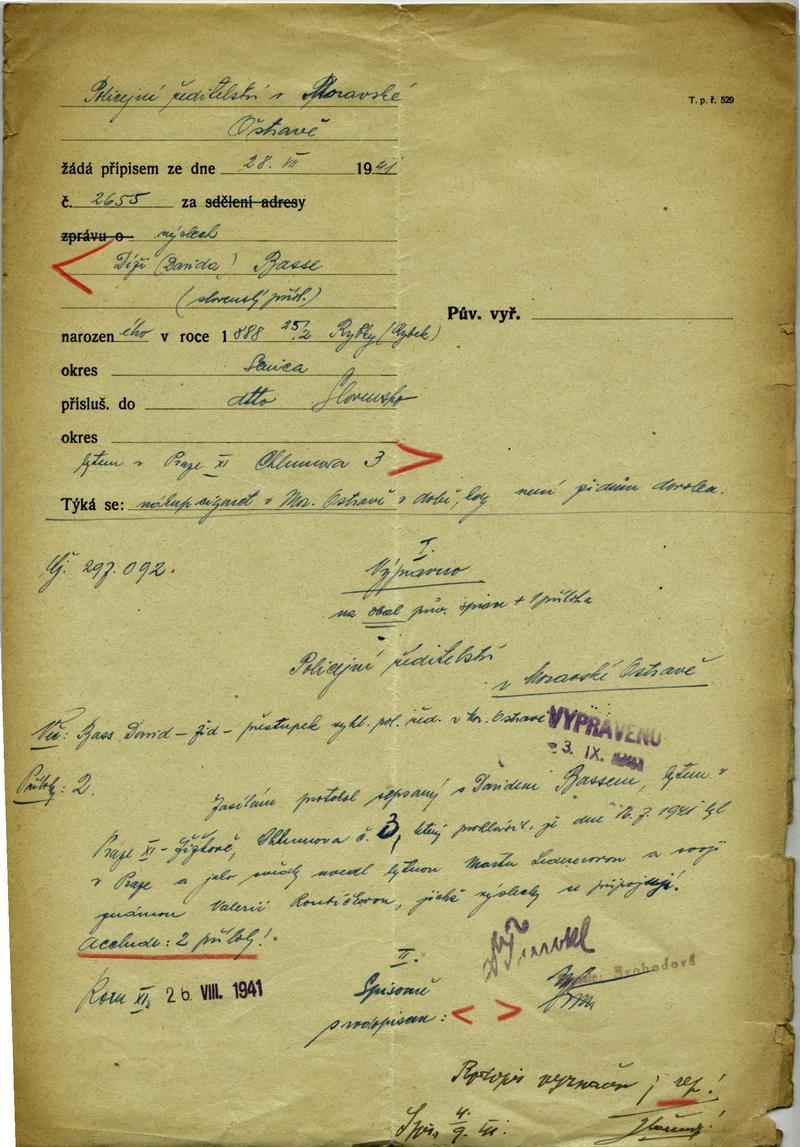 Policejní ředitelství v Moravské
Ostravě
T. p. ř. 529
žádá přípisem ze dne 28. VII 1941
č. 2655 za sdělení adresy
zprávu o výslech
(Davida) Basse
(slovenský přísl.)
Pův. vyř.
narozeného v roce 1888 25/2 Rybky (Rybek)
okres Senica
přísluš. do dtto Slovensko
okres
bytem v Praze XI Chlumova 3
Týká se: nákup cigaret v Mor. Ostravě v době, kdy není židům dovolen.
Čj. 297.092.
I.
Výpravno
na obal pův. spisu + 1 příloha
Policejní ředitelství
v Moravské Ostravě
Věc: Bass David – žid – přestupek vyhl. pol. řed. v Mor. Ostravě
VYPRAVENO
3. IX. 1941
Přílohy: 2.
Zasílám protokol sepsaný s Davidem Bassem, bytem v
Praze XI – Žižkově, Chlumova č. 3, který prohlásil, že dne 16.7. 1941 byl
v Praze a jako svědky uvedl bytnou Martu a svoji
známou Valerii, jichž výslechy se připojují.
Acclude: 2 přílohy!
II.
Svobodová
Kom XI. 26. VIII. 1941
Spisovně
:
Rotopis vyznačen; ref!
4/9.